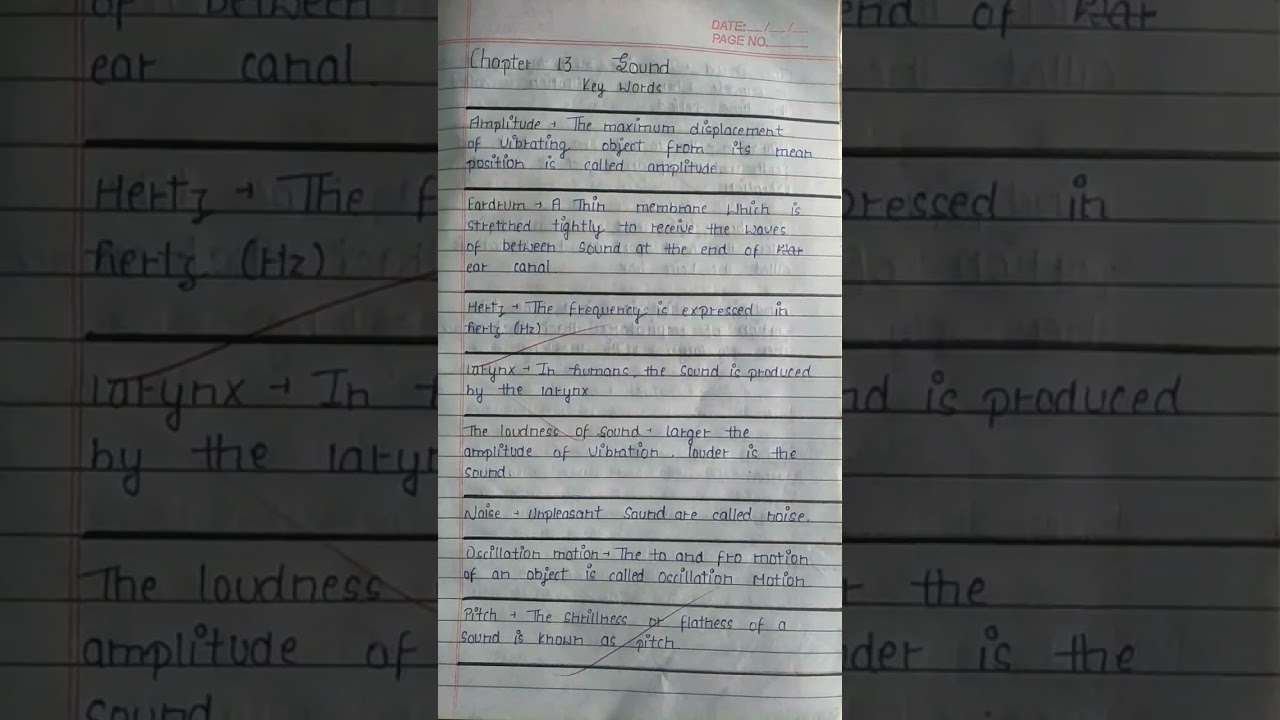 DATE:__/__/__
PAGE NO.
Chapter 13 Sound
Key Words
Amplitude → The maximum displacement
of vibrating object from its mean
position is called amplitude
Eardrum → A Thin membrane which is
stretched tightly to receive the waves
of between sound at the end of
ear canal
Hertz → The frequency is expressed in
hertz (Hz)
larynx → In humans, the sound is produced
by the larynx
The loudness of sound → larger the
amplitude of vibration, louder is the
sound.
Noise → Unpleasant sound are called noise.
Oscillation motion → The to and fro motion
of an object is called oscillation Motion
Pitch → The shrillness or flatness of a
sound is known as pitch.